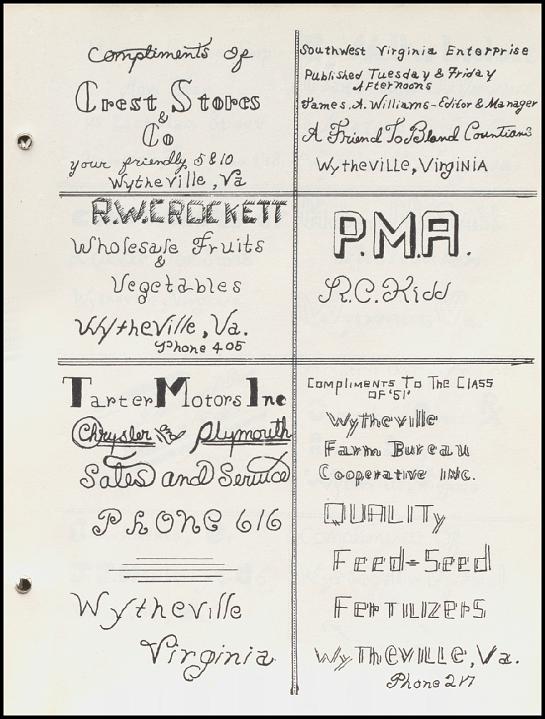 Compliments Of
Crest Stores
&
Co
your friendly 5 & 10
Wytheville, Va
Southwest Virginia Enterprise
Published Tuesday & Friday
Afternoons
James. A. Williams - Editor & Manager
A Friend To Bland Countians
Wytheville, Virginia
R.W. CROCKETT
Wholesale Fruits
&
Vegetables
Wytheville, Va.
Phone 405
P.M.A.
R.C. Kidd
Tarter Motors Inc
Chrysler Plymouth
Sales and Service
PHONE 616
Wytheville
Virginia
Compliments To The Class
OF '51'
Wytheville
Farm Bureau
Cooperative INC.
QUALITy
Feed-Seed
FerTILIZErS
WyTHEVILLE, Va.
Phone 217